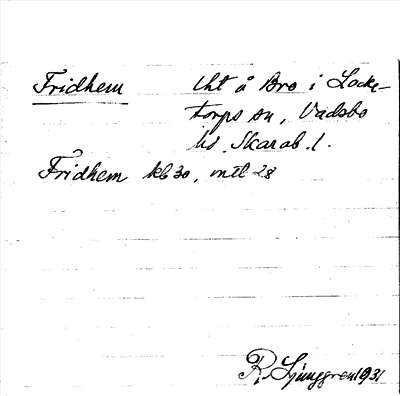 Fridhem lht å Bro i Locke-
torps sn, Vadsbo
hd. Skarab. l.
Fridhem kb 30, mtl 28
R. Ljunggren 1931